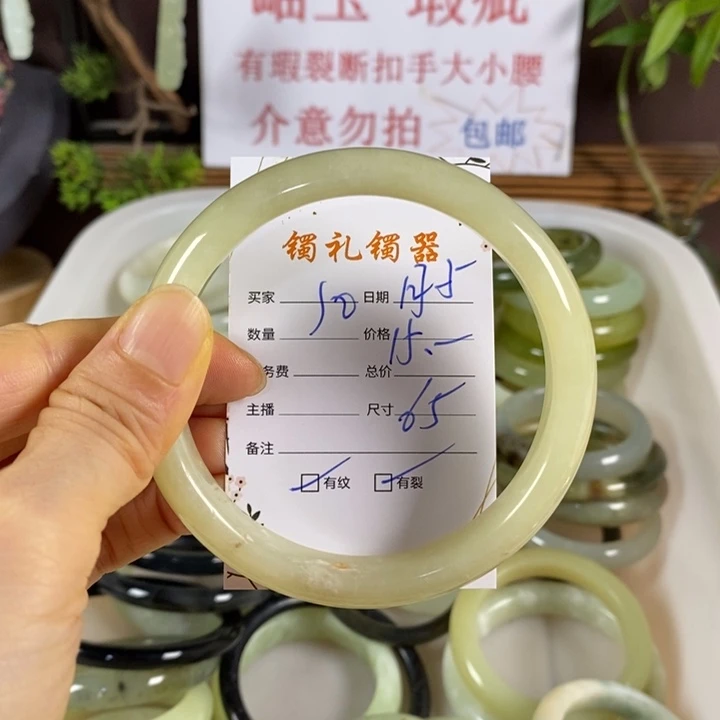 岫玉 瑕疵
有瑕裂断扣手大小腰
介意勿拍 包邮
镯礼镯器
买家 日期
数量 价格 15.-
务费 总价
主播 尺寸 65
备注
有纹 有裂